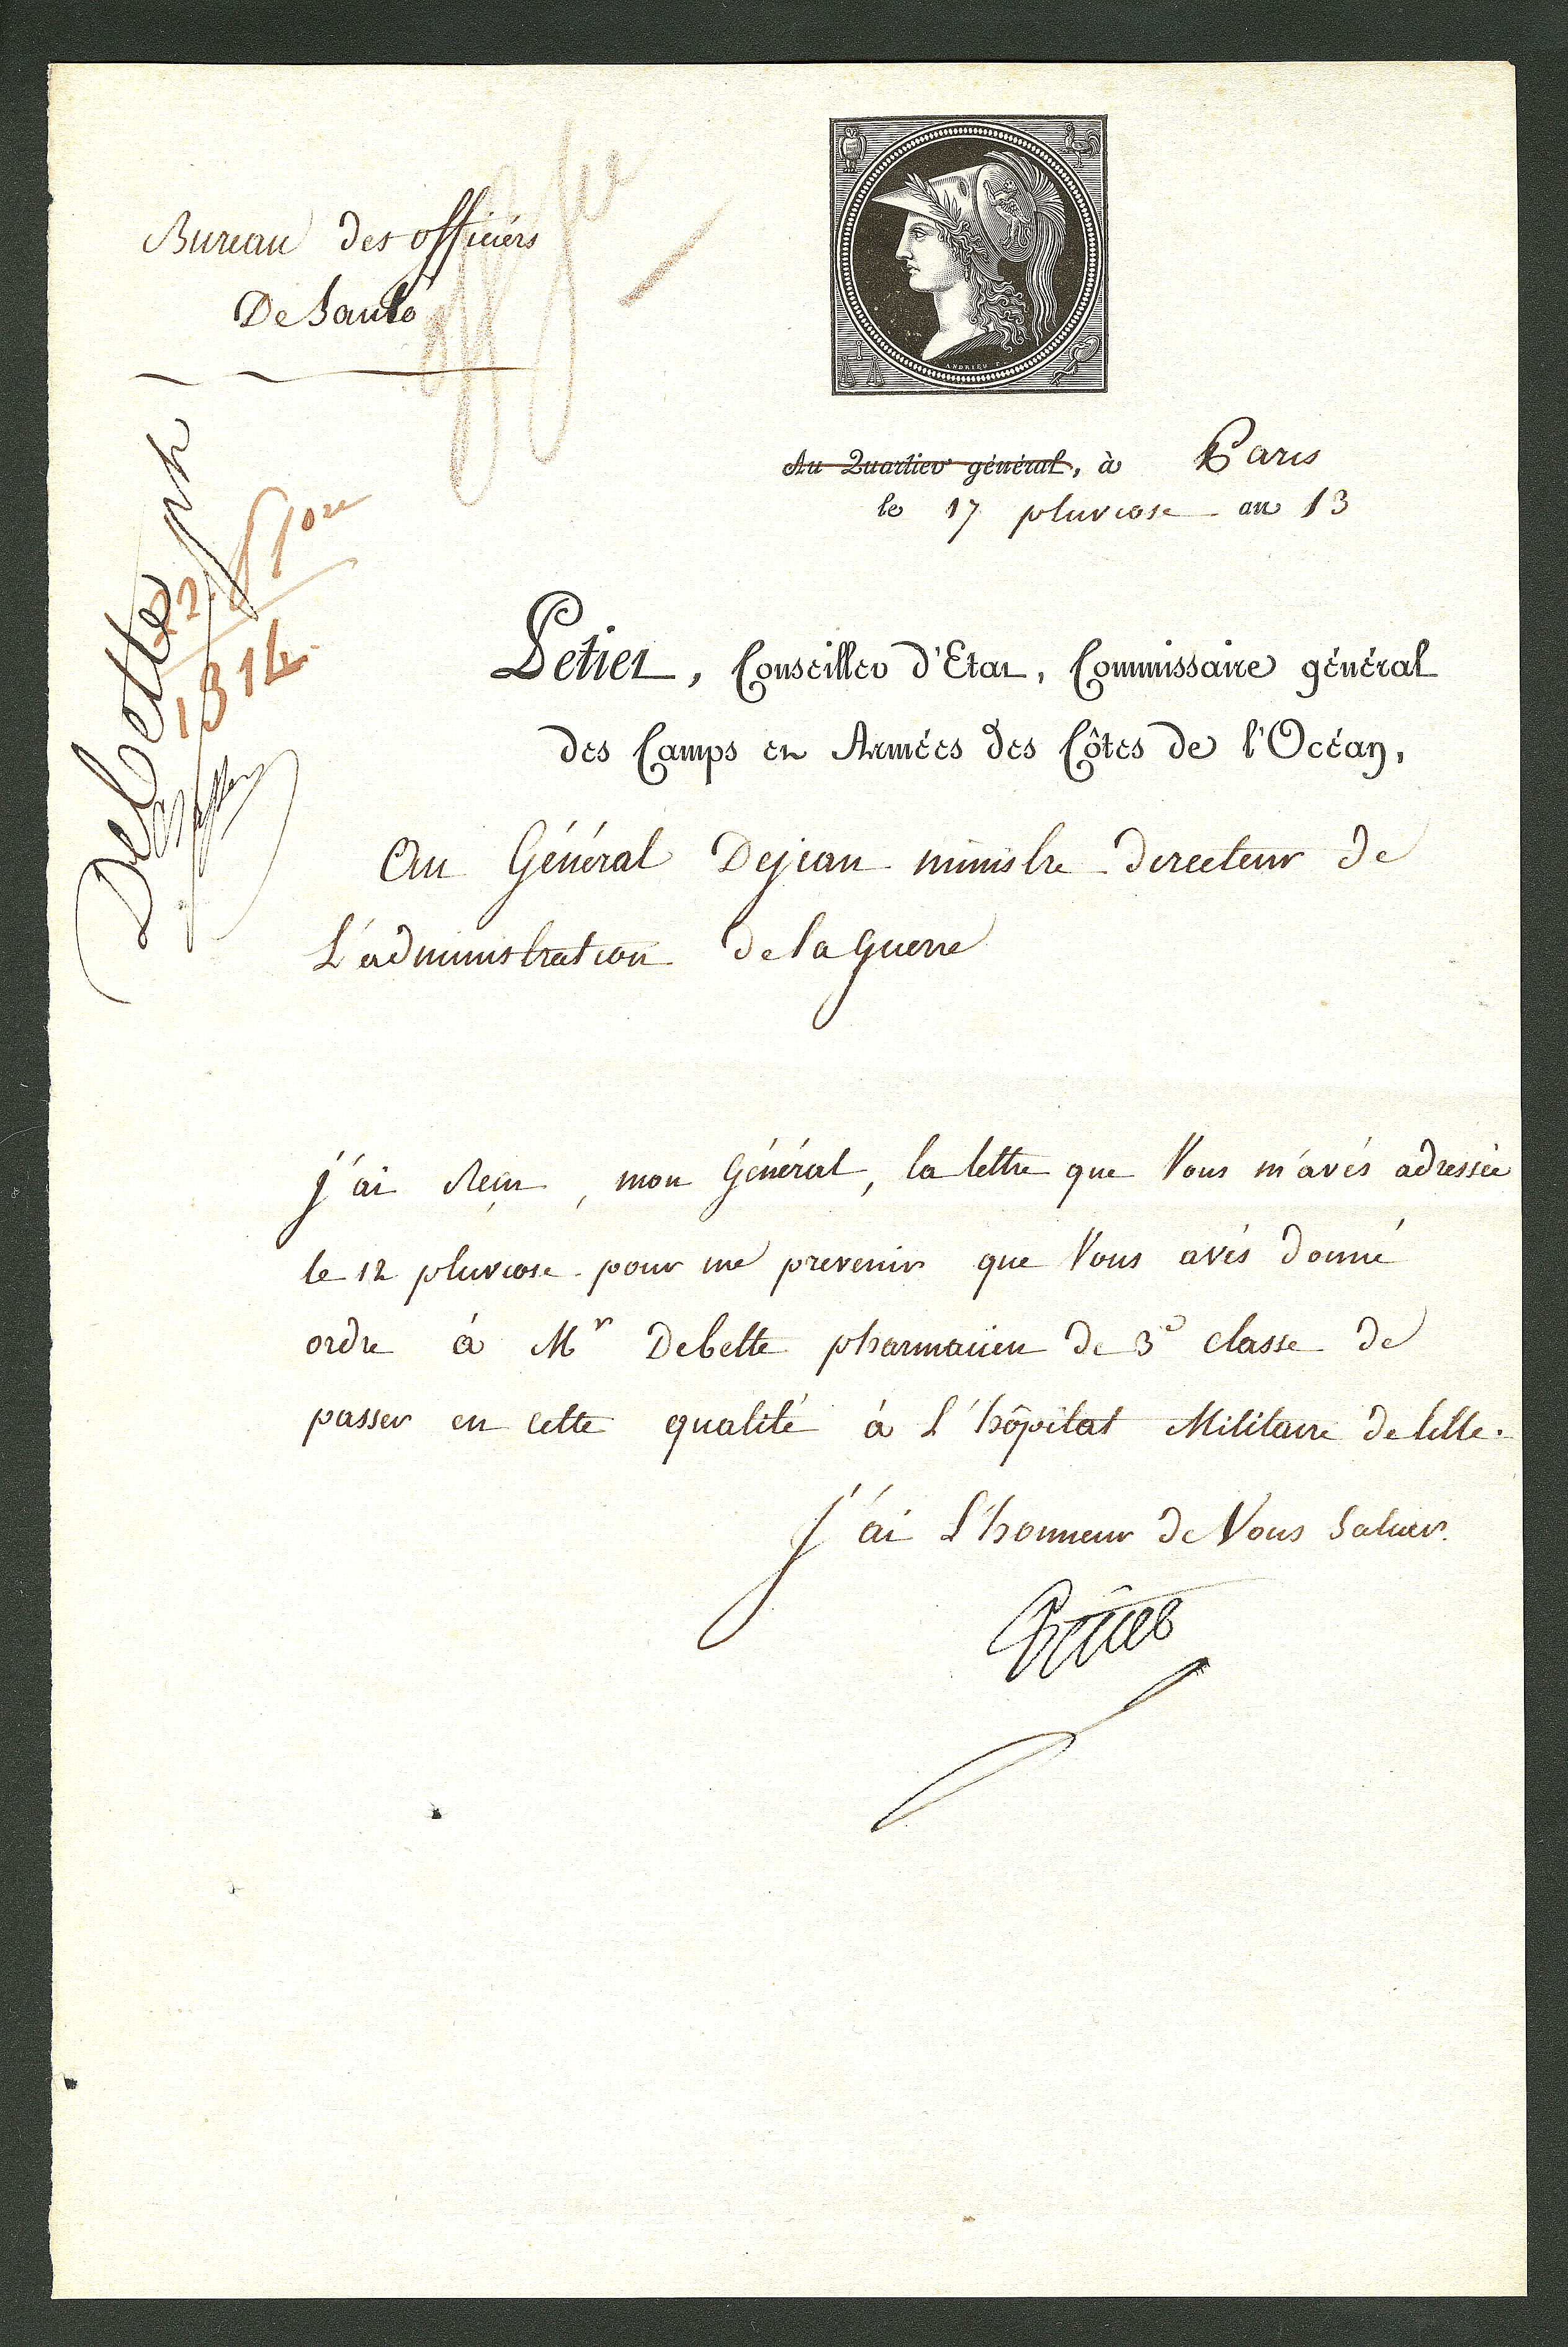 Bureau des officiérs
De Santé
ANDRIEU F.
Au Quartier général, à Paris
le 17 pluviose an 13
Petiet, Conseiller d'Etat, Commissaire général
des Camps et Armées des Côtes de l'Océan,
Au Général Dejean ministre directeur de
L'administration de la Guerre
Debette ph
1814
J'ai Reçu, mon Général, la lettre que Vous m'avés adressée
le 12 pluviose pour me prevenir que Vous avés donné
ordre à Mr Debette pharmacien de 3e classe de
passer en cette qualité à L'hôpital Militaire de lille.
J'ai L'honneur de Vous Saluer.